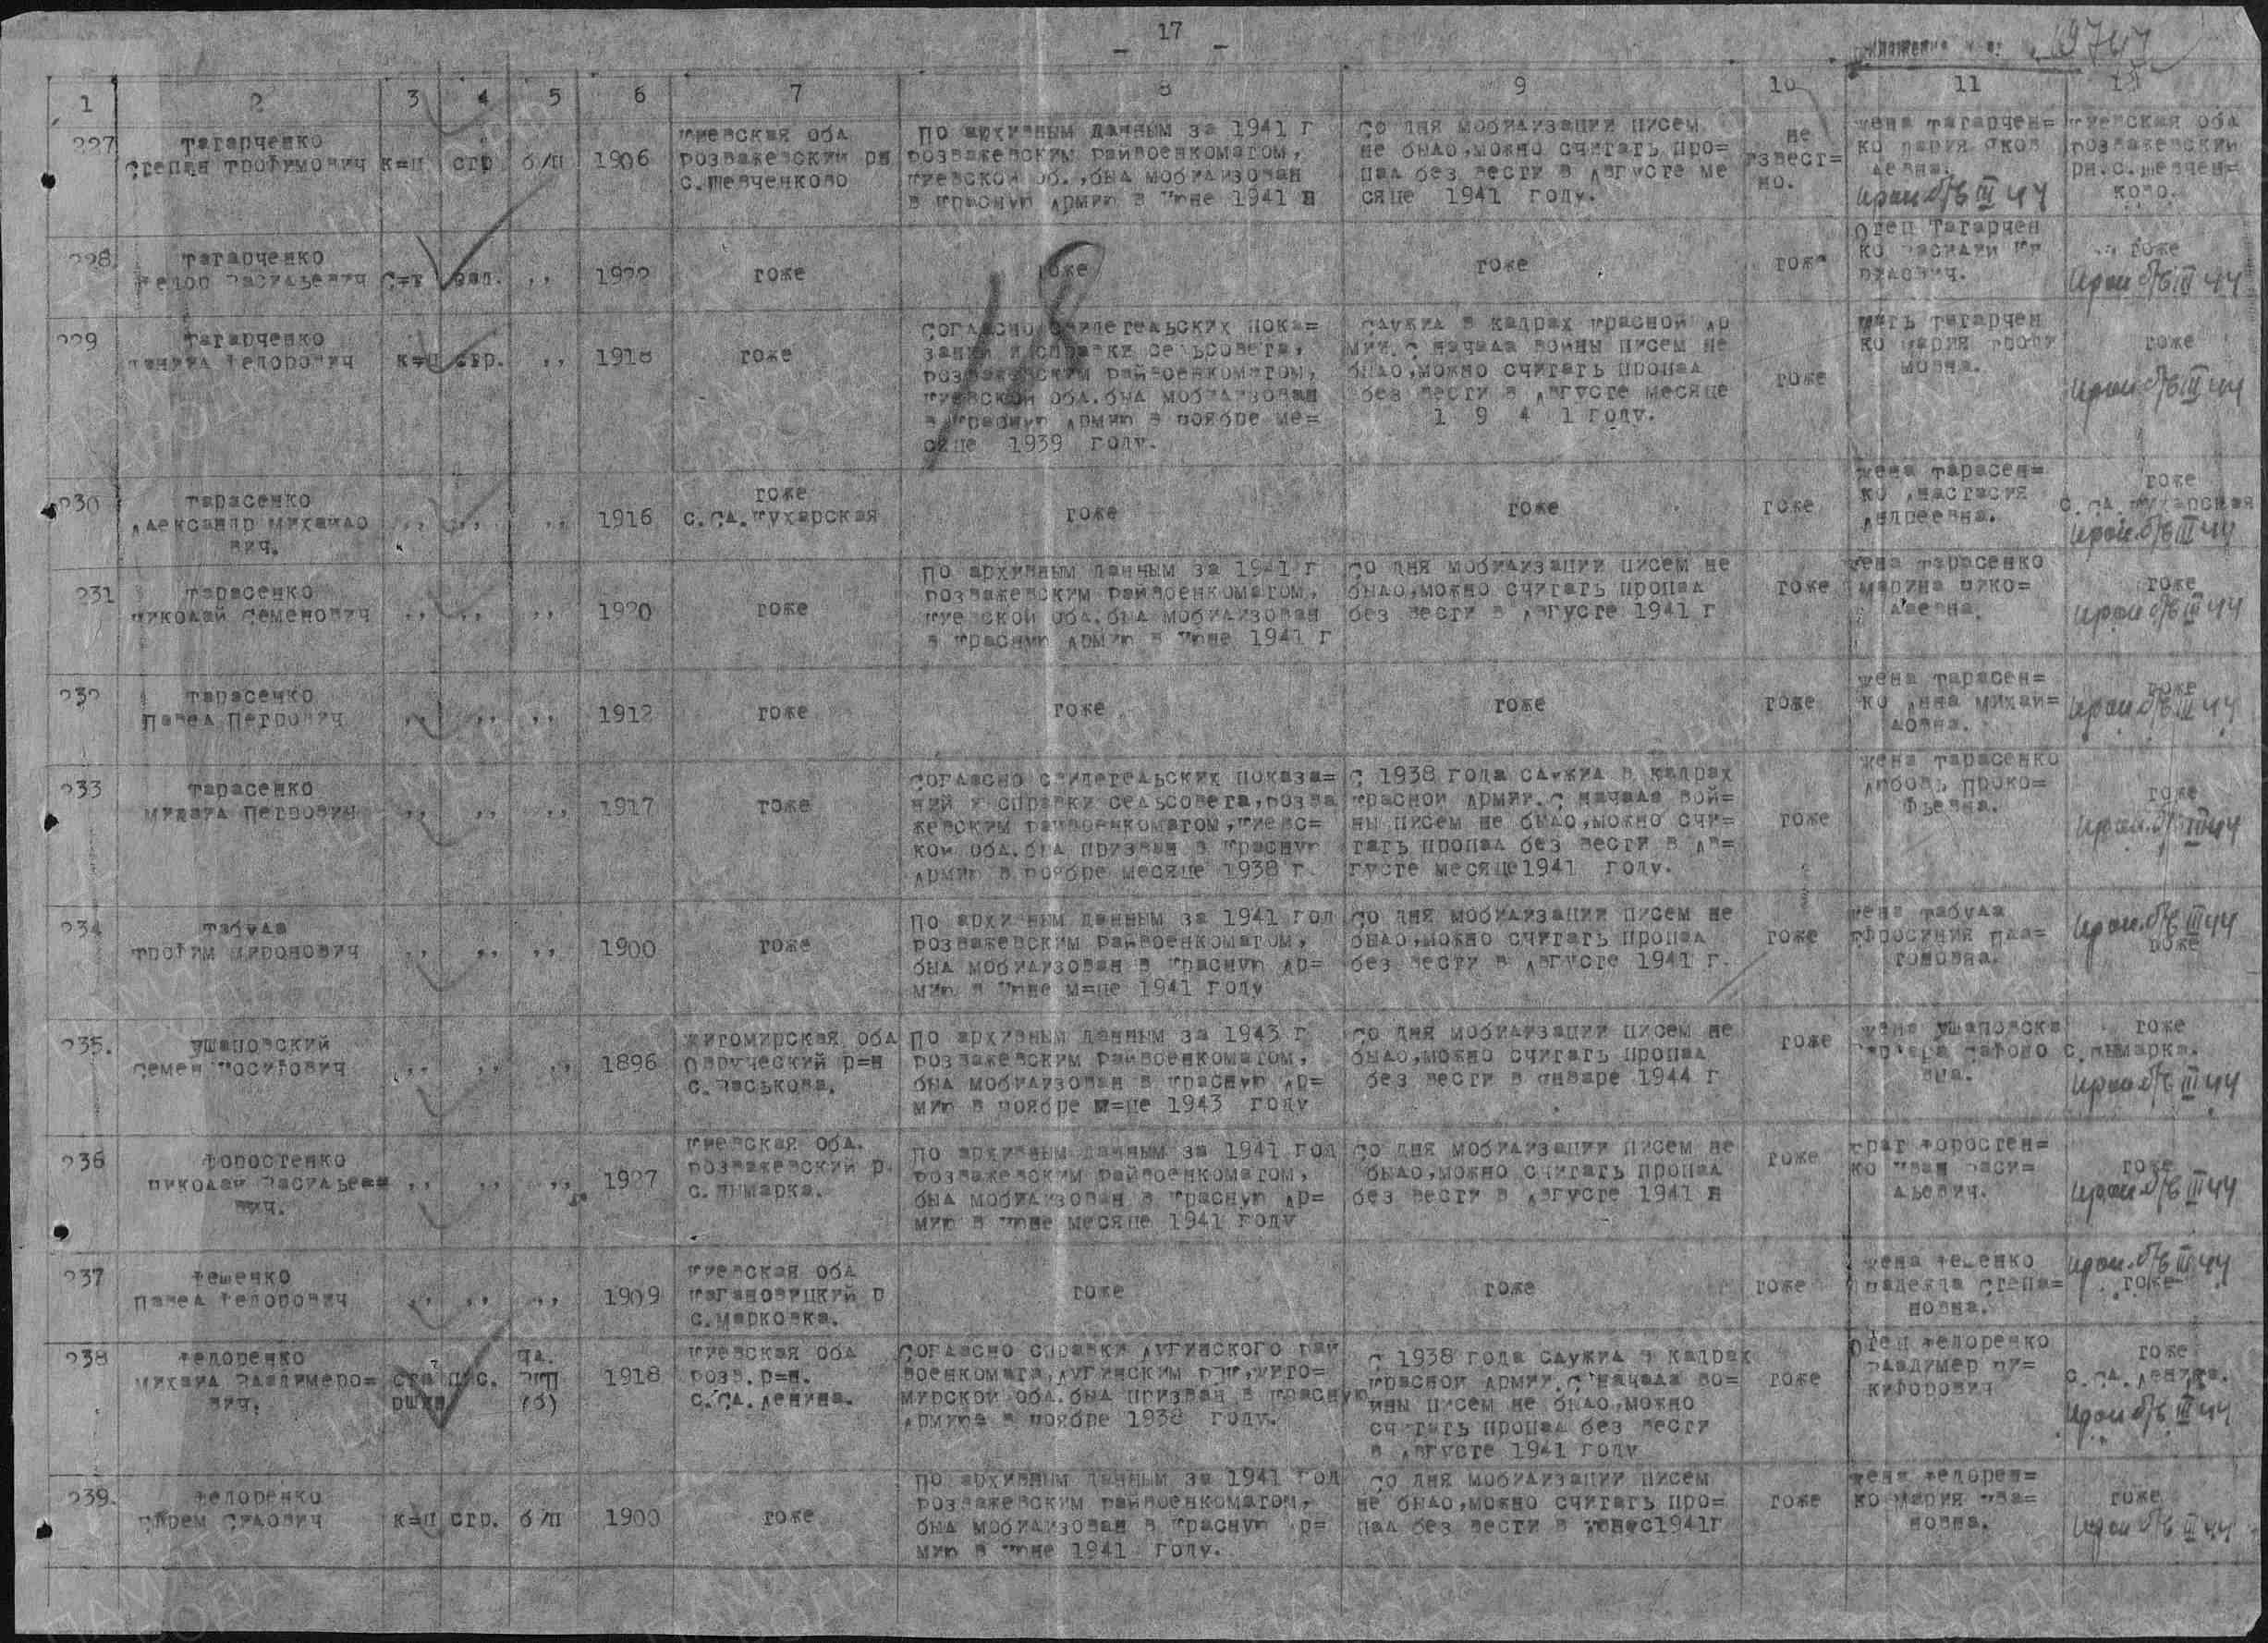 17
19747
1 2 3 4 5 6 7 8 9 10 11 12
227
Татарченко
Степан Трофимович
к=ц
стр
б/п
1906
Киевская обл
Розважевский рн
с.Шевченково
По архивным данным за 1941 г
Розважевским райвоенкоматом,
Киевской об.,был мобилизован
в Красную Армию в Июне 1941 г
Со дня мобилизации писем
не было,можно считать про=
пал без вести в Августе ме
сяце 1941 году.
не
извест=
но.
Жена Татарчен=
ко Мария Яков
левна.
Киевская обл
Розважевский
рн.с.Шевчен=
ково.
228
Татарченко
Федор Васильевич
,,
1922
тоже
тоже
тоже
тоже
Отец Татарчен
ко Василий
тоже
229
Татарченко
Даниил Федорович
к=ц
стр.
,,
1918
тоже
Согласно свидетельских пока=
заний и справки сельсовета,
Розважевским райвоенкоматом,
Киевской обл.был мобилизован
в Красную Армию в Ноябре ме=
сяце 1939 году.
Служил в кадрах Красной Ар
мии.С начала войны писем не
было,можно считать пропал
без вести в Августе месяце
1 9 4 1 году.
тоже
Мать Татарчен
ко Мария Трофи
мовна.
тоже
230
Тарасенко
Александр Михайло
вич.
,,
,,
,,
1916
тоже
с.Сл.Кухарская
тоже
тоже
тоже
Жена Тарасен=
ко Анастасия
Андреевна.
тоже
с.Сл.Кухарская
231
Тарасенко
Николай Семенович
,,
,,
,,
1920
тоже
По архивным данным за 1941 г
Розважевским райвоенкоматом,
Киевской обл.был мобилизован
в Красную Армию в Июне 1941 г
Со дня мобилизации писем не
было,можно считать пропал
без вести в Августе 1941 г
тоже
Жена Тарасенко
Марина Нико=
лаевна.
тоже
232
Тарасенко
Павел Петрович
,,
,,
,,
1912
тоже
тоже
тоже
тоже
Жена Тарасен=
ко Анна Михай=
ловна.
тоже
233
Тарасенко
Михаил Петрович
,,
,,
,,
1917
тоже
Согласно свидетельских показа=
ний и справки сельсовета,Розва
жевским райвоенкоматом,Киевс=
кой обл.был призван в Красную
Армию в Ноябре месяце 1938 г.
С 1938 года служил в кадрах
Красной Армии.С начала вой=
ны писем не было,можно счи=
тать пропал без вести в Ав=
густе месяце1941 году.
тоже
Жена Тарасенко
Любовь Проко=
фьевна.
тоже
234
Табула
Трофим Миронович
,,
,,
,,
1900
тоже
По архивным данным за 1941 год
Розважевским райвоенкоматом,
был мобилизован в Красную Ар=
мию в Июне м=це 1941 году
Со дня мобилизации писем не
было,можно считать пропал
без вести в Августе 1941 г.
тоже
Жена Табула
Ефросиния Пла=
тоновна.
тоже
235.
Ушаповский
Семен Иосифович
,,
,,
,,
1896
Житомирская обл
Овручский р=н
с.Васькова.
По архивным данным за 1943 г
Розважевским райвоенкоматом,
был мобилизован в Красную Ар=
мию в Ноябре м=це 1943 году
Со дня мобилизации писем не
было,можно считать пропал
без вести в Январе 1944 г
тоже
Жена Ушаповска
вна.
тоже
с.Ямарка.
236
Форостенко
Николай Васильеви
вич.
,,
,,
,,
1927
Киевская обл.
Розважевский р.
с.Ямарка.
По архивным данным за 1941 год
Розважевским райвоенкоматом,
был мобилизован в Красную Ар=
мию в Июне месяце 1941 году
Со дня мобилизации писем не
было,можно считать пропал
без вести в Августе 1941 г
тоже
Брат Форостен=
ко Иван Васи=
льевич.
тоже
237
Фещенко
Павел Федорович
,,
,,
,,
1909
Киевская обл
Кагановицкий р
с.Марковка.
тоже
тоже
тоже
Жена Фещенко
Надежда Степа=
новна.
тоже
238
Федоренко
Михаил Владимеро=
вич.
ста
ршин
пис.
чл.
ВКП
(б)
1918
Киевская обл
Розв. р=н.
с.Сл.Ленина.
Согласно справки Лугинского рай
военкомата,Лугинским РВК,Жито=
мирской обл.был призван в Красную
Армию в Ноябре 1938 году.
С 1938 года служил в кадрах
Красной Армии.С начала во=
йны писем не было,можно
считать пропал без вести
в Августе 1941 году
тоже
Отец Федоренко
Владимер Ни=
кифорович
тоже
с.Сл.Ленина.
239.
Федоренко
Ефрем Силович
к=ц
стр.
б/п
1900
тоже
По архивным данным за 1941 год
Розважевским райвоенкоматом,
был мобилизован в Красную Ар=
мию в Июне 1941 году.
Со дня мобилизации писем
не было,можно считать про=
пал без вести в
1941г
тоже
Жена Федорен=
ко Мария Ива=
новна.
тоже
18